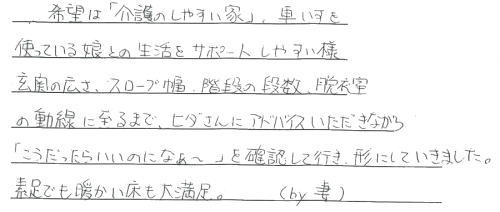 希望は「介護のしやすい家」、車いすを
使っている娘との生活をサポートしやすい様
玄関の広さ、スロープ幅、階段の段数、脱衣室
の動線に至るまで、ヒダさんにアドバイスいただきながら
「こうだったらいいのになぁ～」を確認して行き、形にしていきました。
素足でも暖かい床も大満足。 （by 妻）